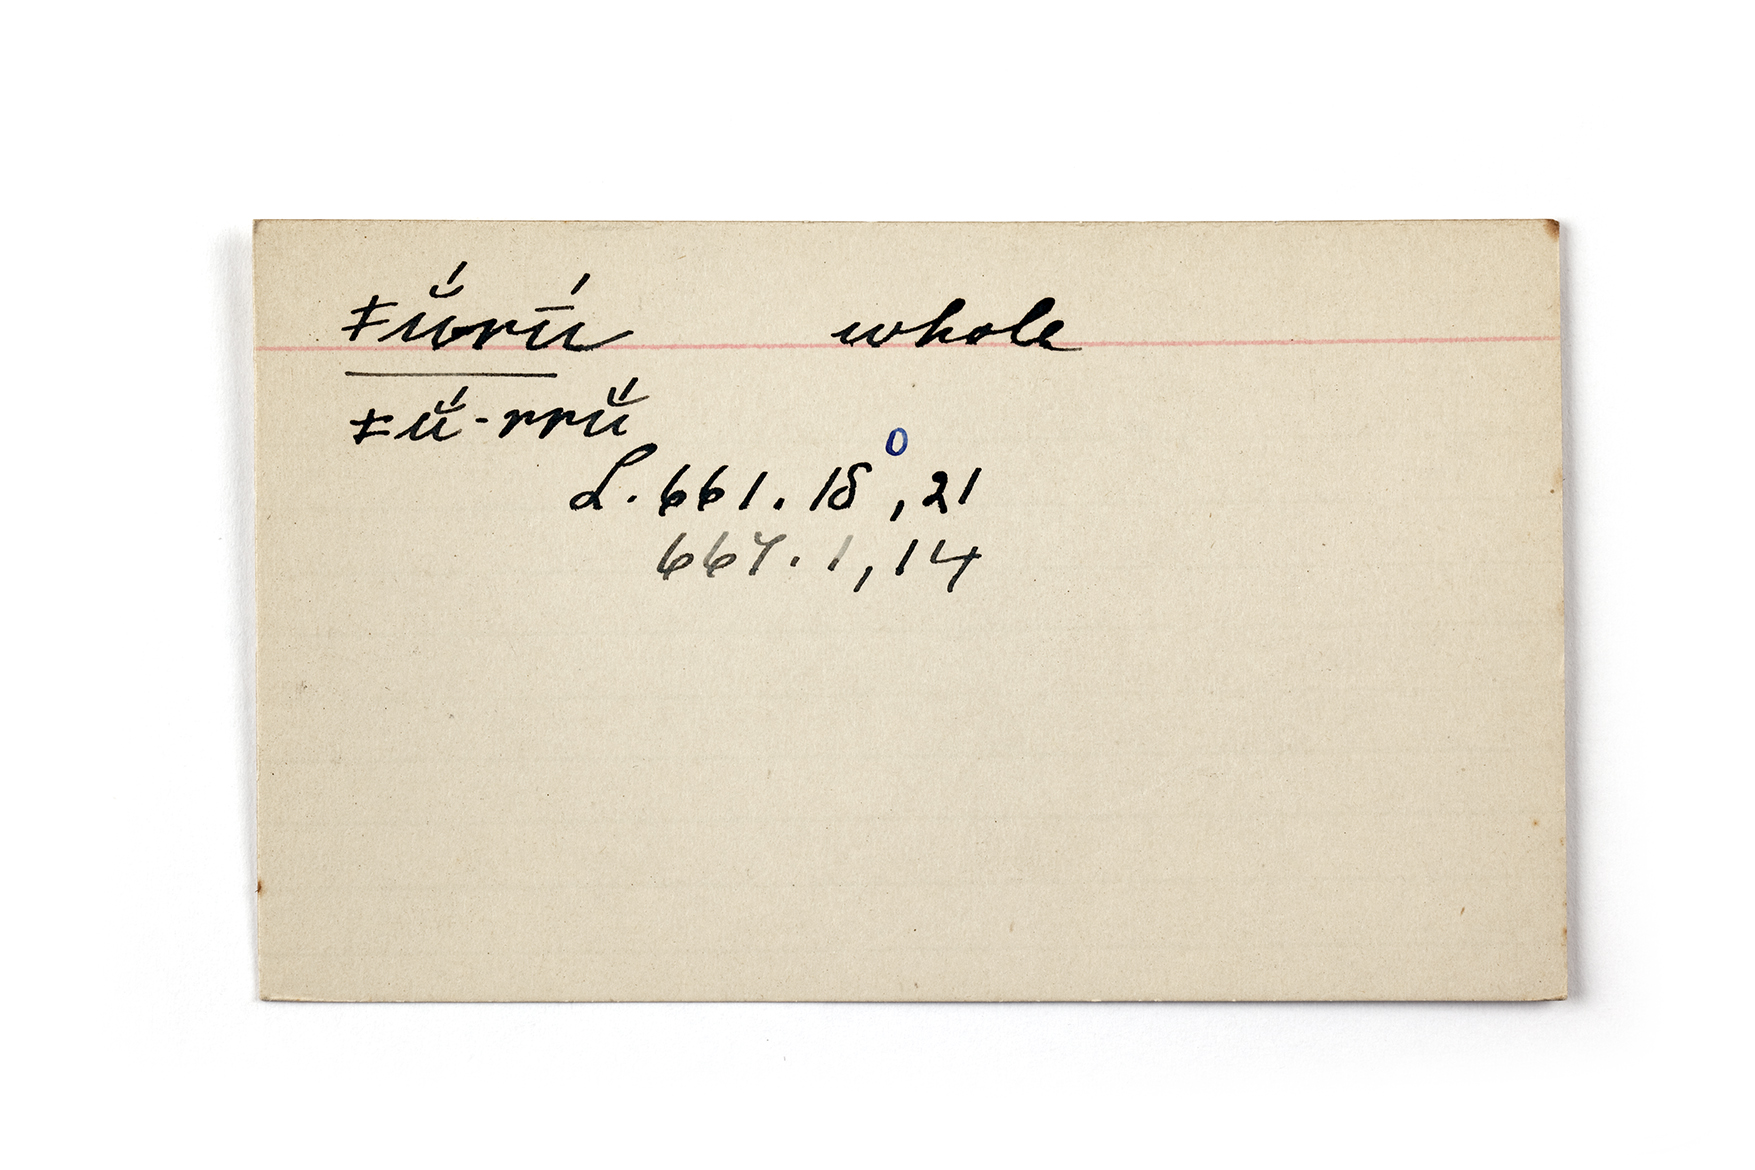 ǂŭ́rū́ whole
ǂŭ́-rrŭ́
L. 661. 18⁰, 21
667. 1, 14